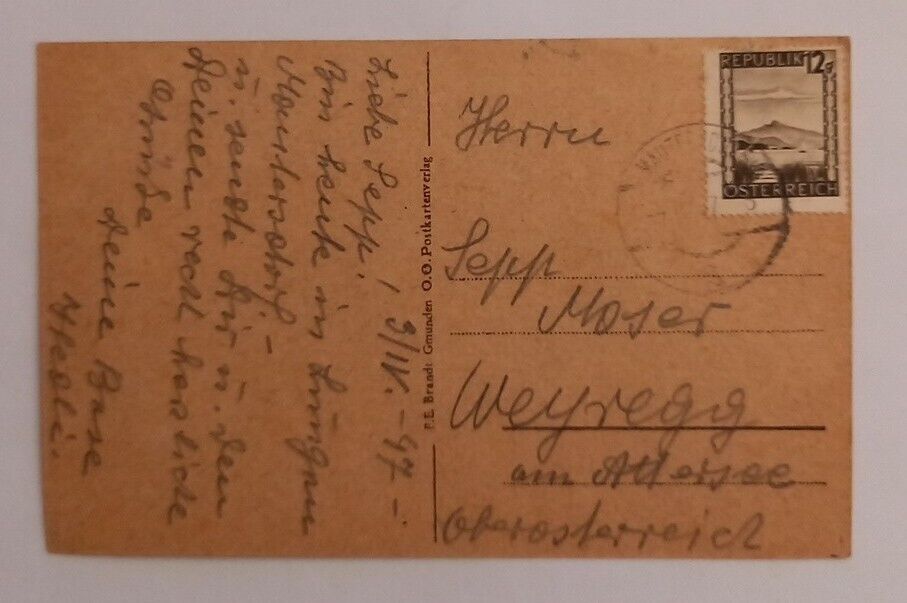 Liebe Sepp, 3/IV. - 47 -
Bin heute in Lungau
Mauterndorf -
u. sende dir u. den
deinen recht herzliche
Grüße
deine Base
Hedi.
P.E. Brandt Gmunden O.Ö. Postkartenverlag
Herrn
Sepp
Moser
Weyregg
am Attersee
Oberösterreich
REPUBLIK 12g
ÖSTERREICH